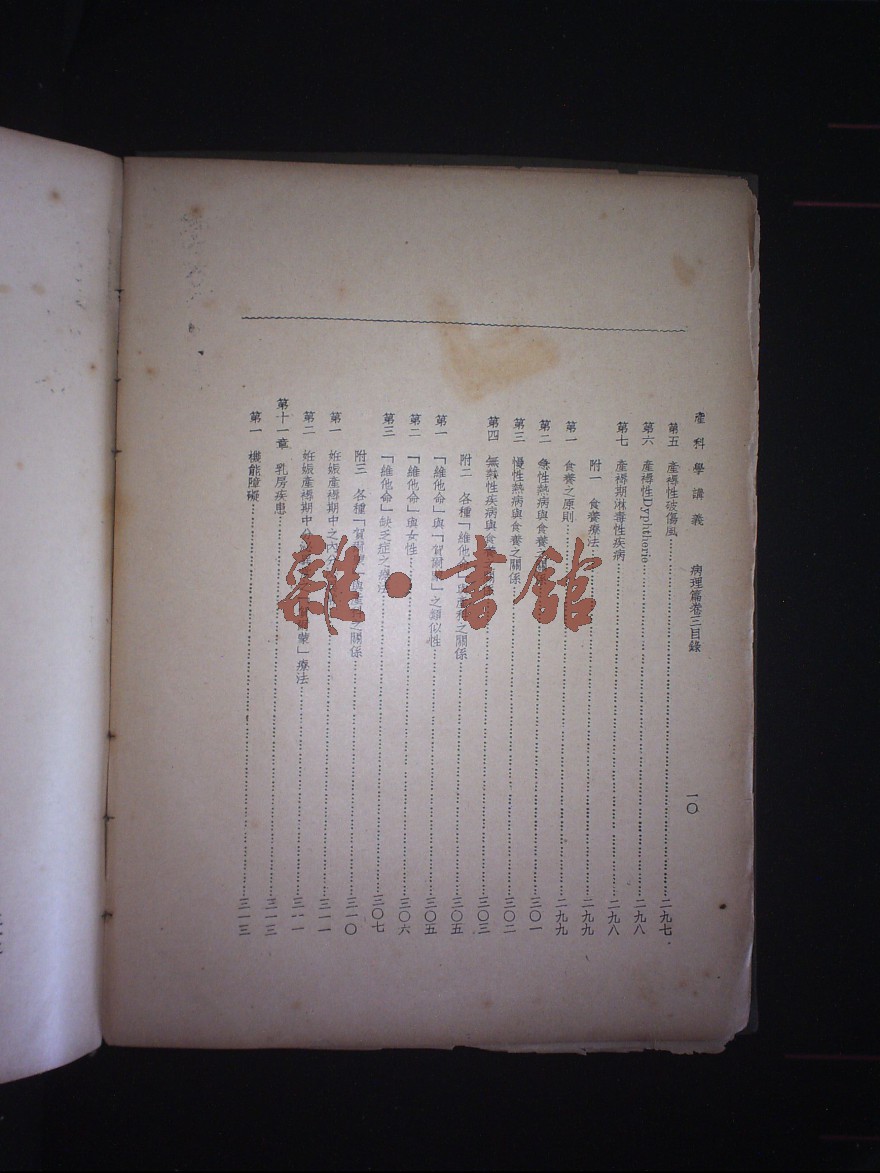 產科學講義 病理篇卷三目錄 一〇
第五 產褥性破傷風……二九七
第六 產褥性Dyphtherie……二九八
第七 產褥期淋毒性疾病……二九八
附一 食養療法……二九九
第一 食養之原則……二九九
第二 急性熱病與食養之關係……三〇一
第三 慢性熱病與食養之關係……三〇二
第四 無熱性疾病與食養……三〇三
附二 各種「維他命」與產科之關係……三〇五
第一 「維他命」與「賀爾蒙」之類似性……三〇五
第二 「維他命」與女性……三〇六
第三 「維他命」缺乏症之療法……三〇七
附三 各種「賀爾蒙」與產科之關係……三一〇
第一 妊娠產褥期中之內分……三一一
第二 妊娠產褥期中 蒙」療法……三一一
第十一章 乳房疾患……三一三
第一 機能障礙……三一三
雜·書館